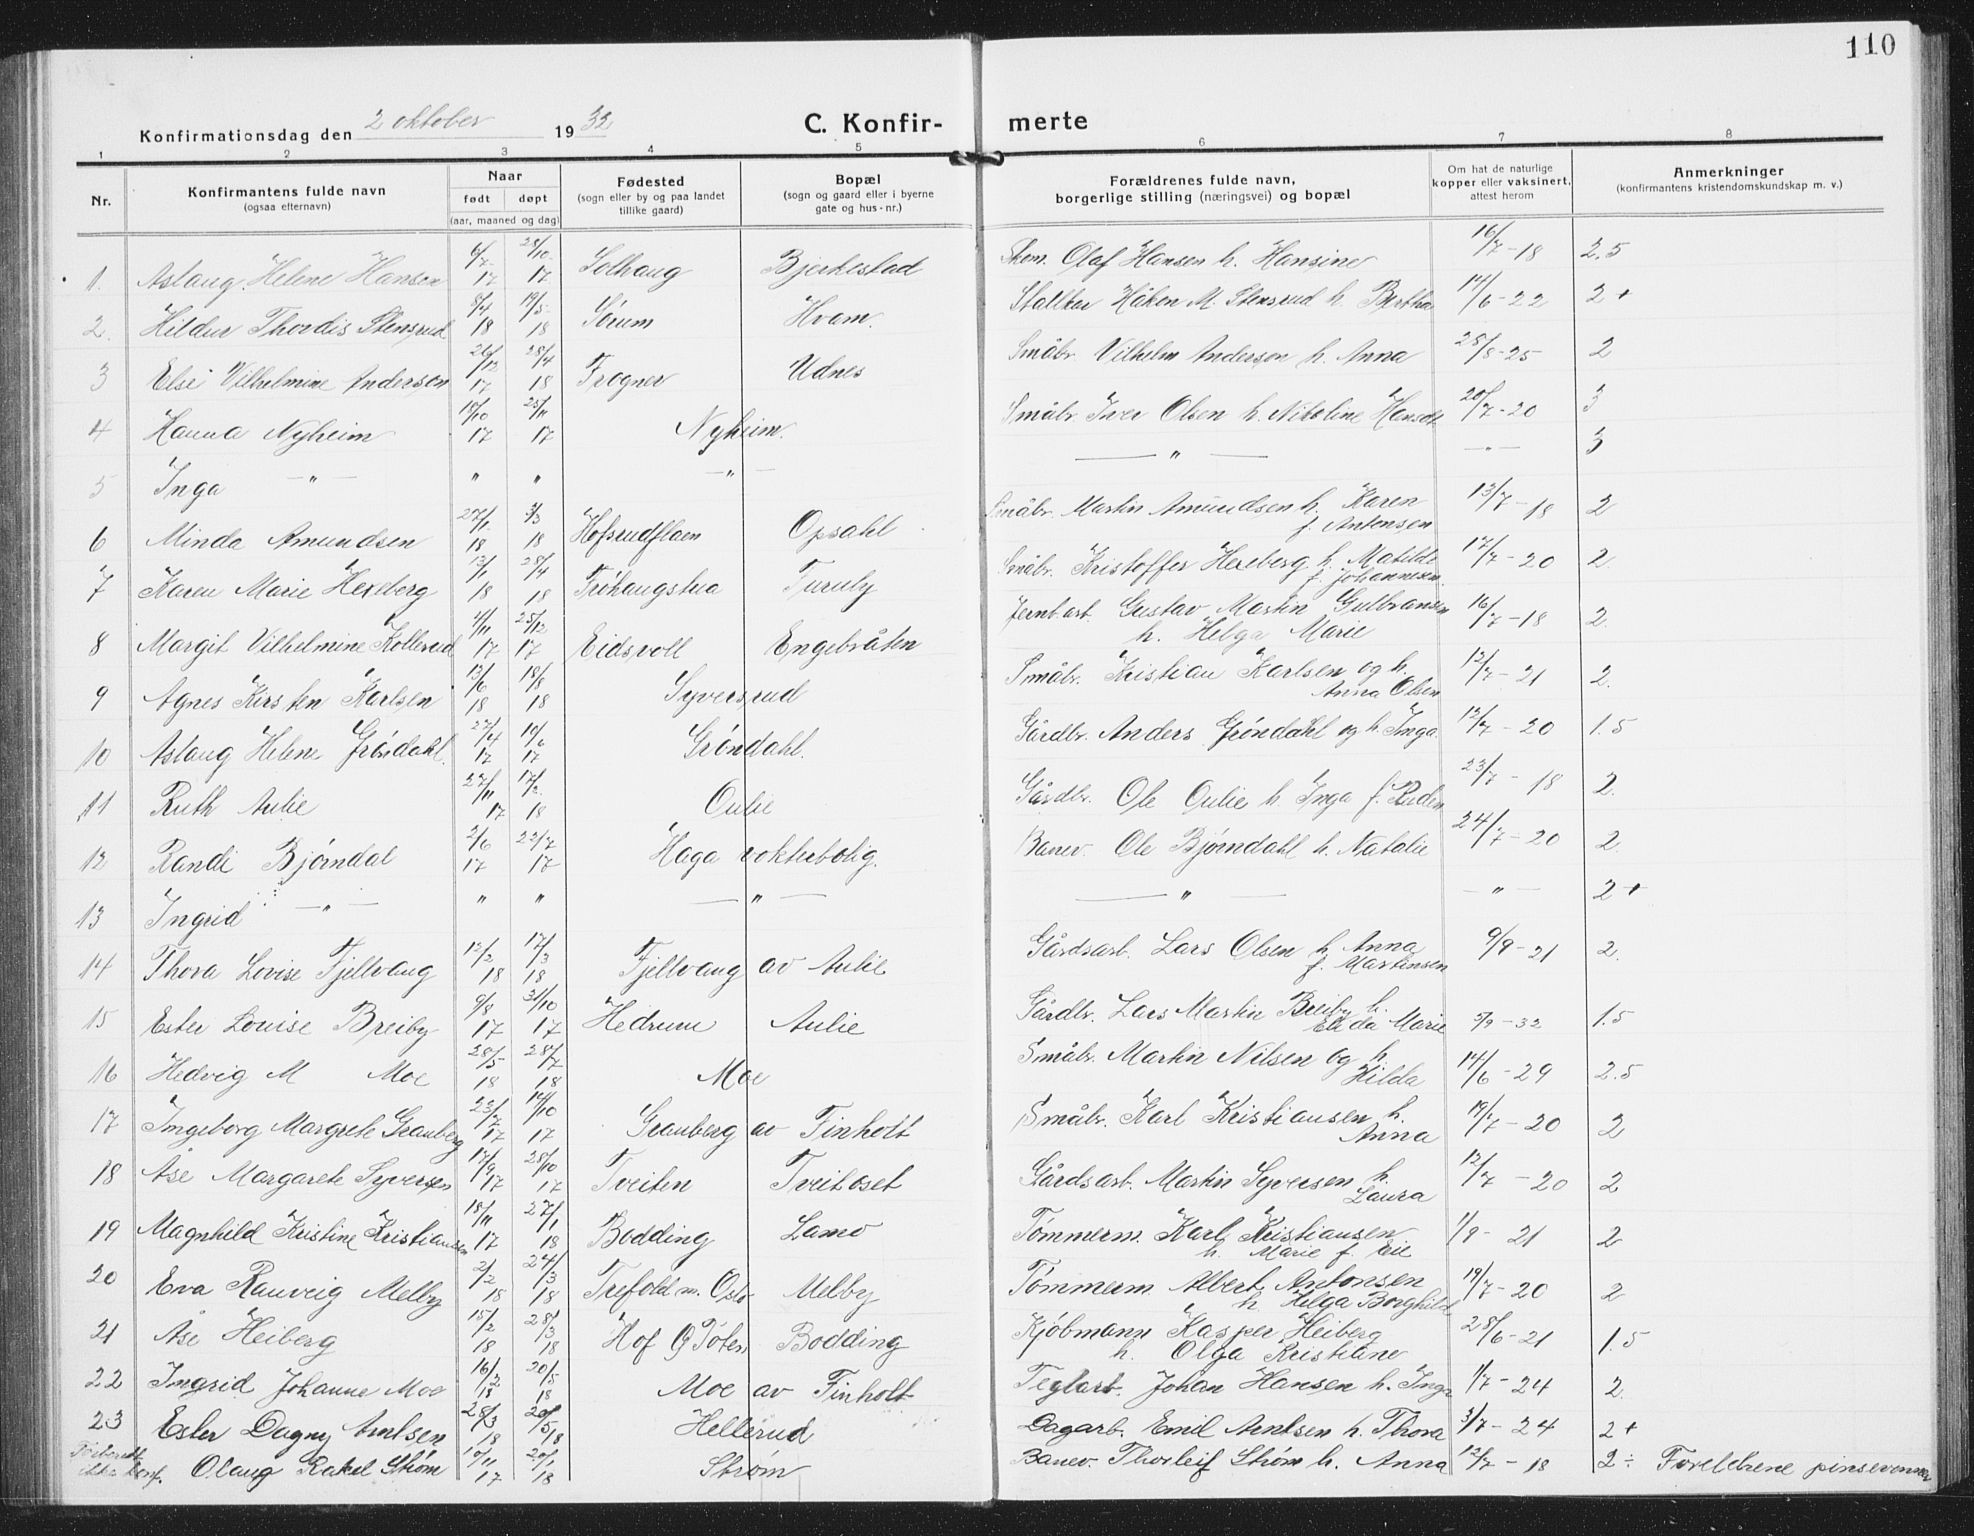 110
Konfirmationsdag den 2 oktober 1932
C. Konfir-
merte
1 2 3 4 5 6 7 8
Nr.
Konfirmantens fulde navn
(ogsaa efternavn)
Naar
født døpt
(aar, maaned og dag)
Fødested
(sogn eller by og paa landet
tillike gaard)
Bopæl
(sogn og gaard eller i byerne
gate og hus-nr.)
Forældrenes fulde navn,
borgerlige stilling (næringsvei) og bopæl
Om hat de naturlige
kopper eller vaksinert,
attest herom
Anmerkninger
(konfirmantens kristendomskundskap m. v.)
1. Aslaug Helene Hansen 6/7 17 28/10 17 Solhaug Bjerkestad Skom. Olaf Hansen h. Hansine 16/7-18 2.5
2. Hildur Thordis Stensrud 8/4 18 19/5 18 Sørum Hvam. Håken M. Stensrud h. Bertha 14/6-22 2+
3 Else Vilhelmine Anderson 26/12 17 28/4 18 Frogner Udnes Småbr. Vilhelm Anderson h. Anna 28/8-25 2
4 Hanna Nyheim 18/10 17 25/11 17 Nyheim. Småbr. Iver Olsen h. Nikoline 20/7-20 3
5 Inga — " — " " — " — — " — — " — 3
6 Minda Amundsen 27/1 18 3/3 18 Hofsrudfloen Opsahl Småbr. Martin Amundsen h. Karen
f. Antonsen 13/7-18 2
7 Karen Marie Hexeberg 13/1 18 28/4 18 Trøhaugstua Turuly Småbr. Kristoffer Hexeberg h. Matilde
f. Johannesen. 17/7-20 2.
8 Margit Vilhelmine Kollerud 4/11 17 25/12 17 Eidsvoll Engebråten Jernb.arb. Gustav Martin Gulbransen
h. Helga Marie 16/7-18 2.
9 Agnes Kirsten Karlsen 13/6 18 18/8 18 Syversrud Småbr. Kristian Karlsen og h.
Anna Olsen 12/7-21 2.
10 Aslaug Helene Grøndahl. 27/4 17 10/6 17 Grøndahl. Gårdbr. Anders Grøndahl og h. Inga 12/7-20 1.5
11 Ruth Aulie 27/11 17 17/2 18 Aulie Gårdbr. Ole Aulie h. Inga f. Ruden 23/7-18 2.
12 Randi Bjørndal 2/6 17 22/7 17 Haga vokterbolig. Banev. Ole Bjørndahl h. Natalie 24/7-20 2.
13 Ingrid — " — " " — " — — " — — " — 2+
14 Thora Lovise Fjellvang 12/2 18 17/3 18 Fjellvang av Aulie Gårdsarb. Lars Olsen h. Anna
f. Martinsen 9/9-21 2.
15 Ester Louise Breiby 9/8 17 31/10 17 Hedrum Aulie Gårdbr. Lars Martin Breiby h.
Elida Marie 5/9-32 1.5
16 Hedvig M Moe 28/5 18 28/7 18 Moe Småbr. Martin Nilsen og h.
Hilda 14/6-29 2.5
17 Ingeborg Margrete Granberg 23/7 17 14/10 17 Granberg av Finholt Småbr. Karl Kristiansen h.
Anna 19/7-20 2
18 Åse Margarete Syversen 17/9 17 28/10 17 Tveiten Tveitoset Gårdsarb. Martin Syversen h.
Laura 12/7-20 2
19 Magnhild Kristine Kristiansen 18/11 17 27/1 18 Bodding Lamo Tømmerm. Karl Kristiansen
h. Marie f. Lie 1/9-21 2
20 Eva Rauveig Melby 2/2 18 24/3 18 Trefold m. Oslo Melby Tømmerm Albert Antonsen
h Helga Borghild 19/7-20 2
21 Åse Heiberg 15/2 18 28/3 18 Hof Ø Toten Bodding Kjøbmann Kasper Heiberg
h. Olga Kristiane 28/6-21 1.5
22 Ingrid Johanne Moe 16/2 18 20/5 18 Moe av Finholt Teglarb. Johan Hansen h. Inga 1/7-24 2.
23 Ester Dagny Arntsen 28/3 18 20/5 18 Hellerud Dagarb. Emil Arntsen h. Thora 3/7-24 2+
Forberedt
ikke konf. Olaug Rakel Strøm 10/11 17 20/1 18 Strøm Banev. Thorleif Strøm h. Anna 12/7-18 2÷ Foreldrene pinsevenner